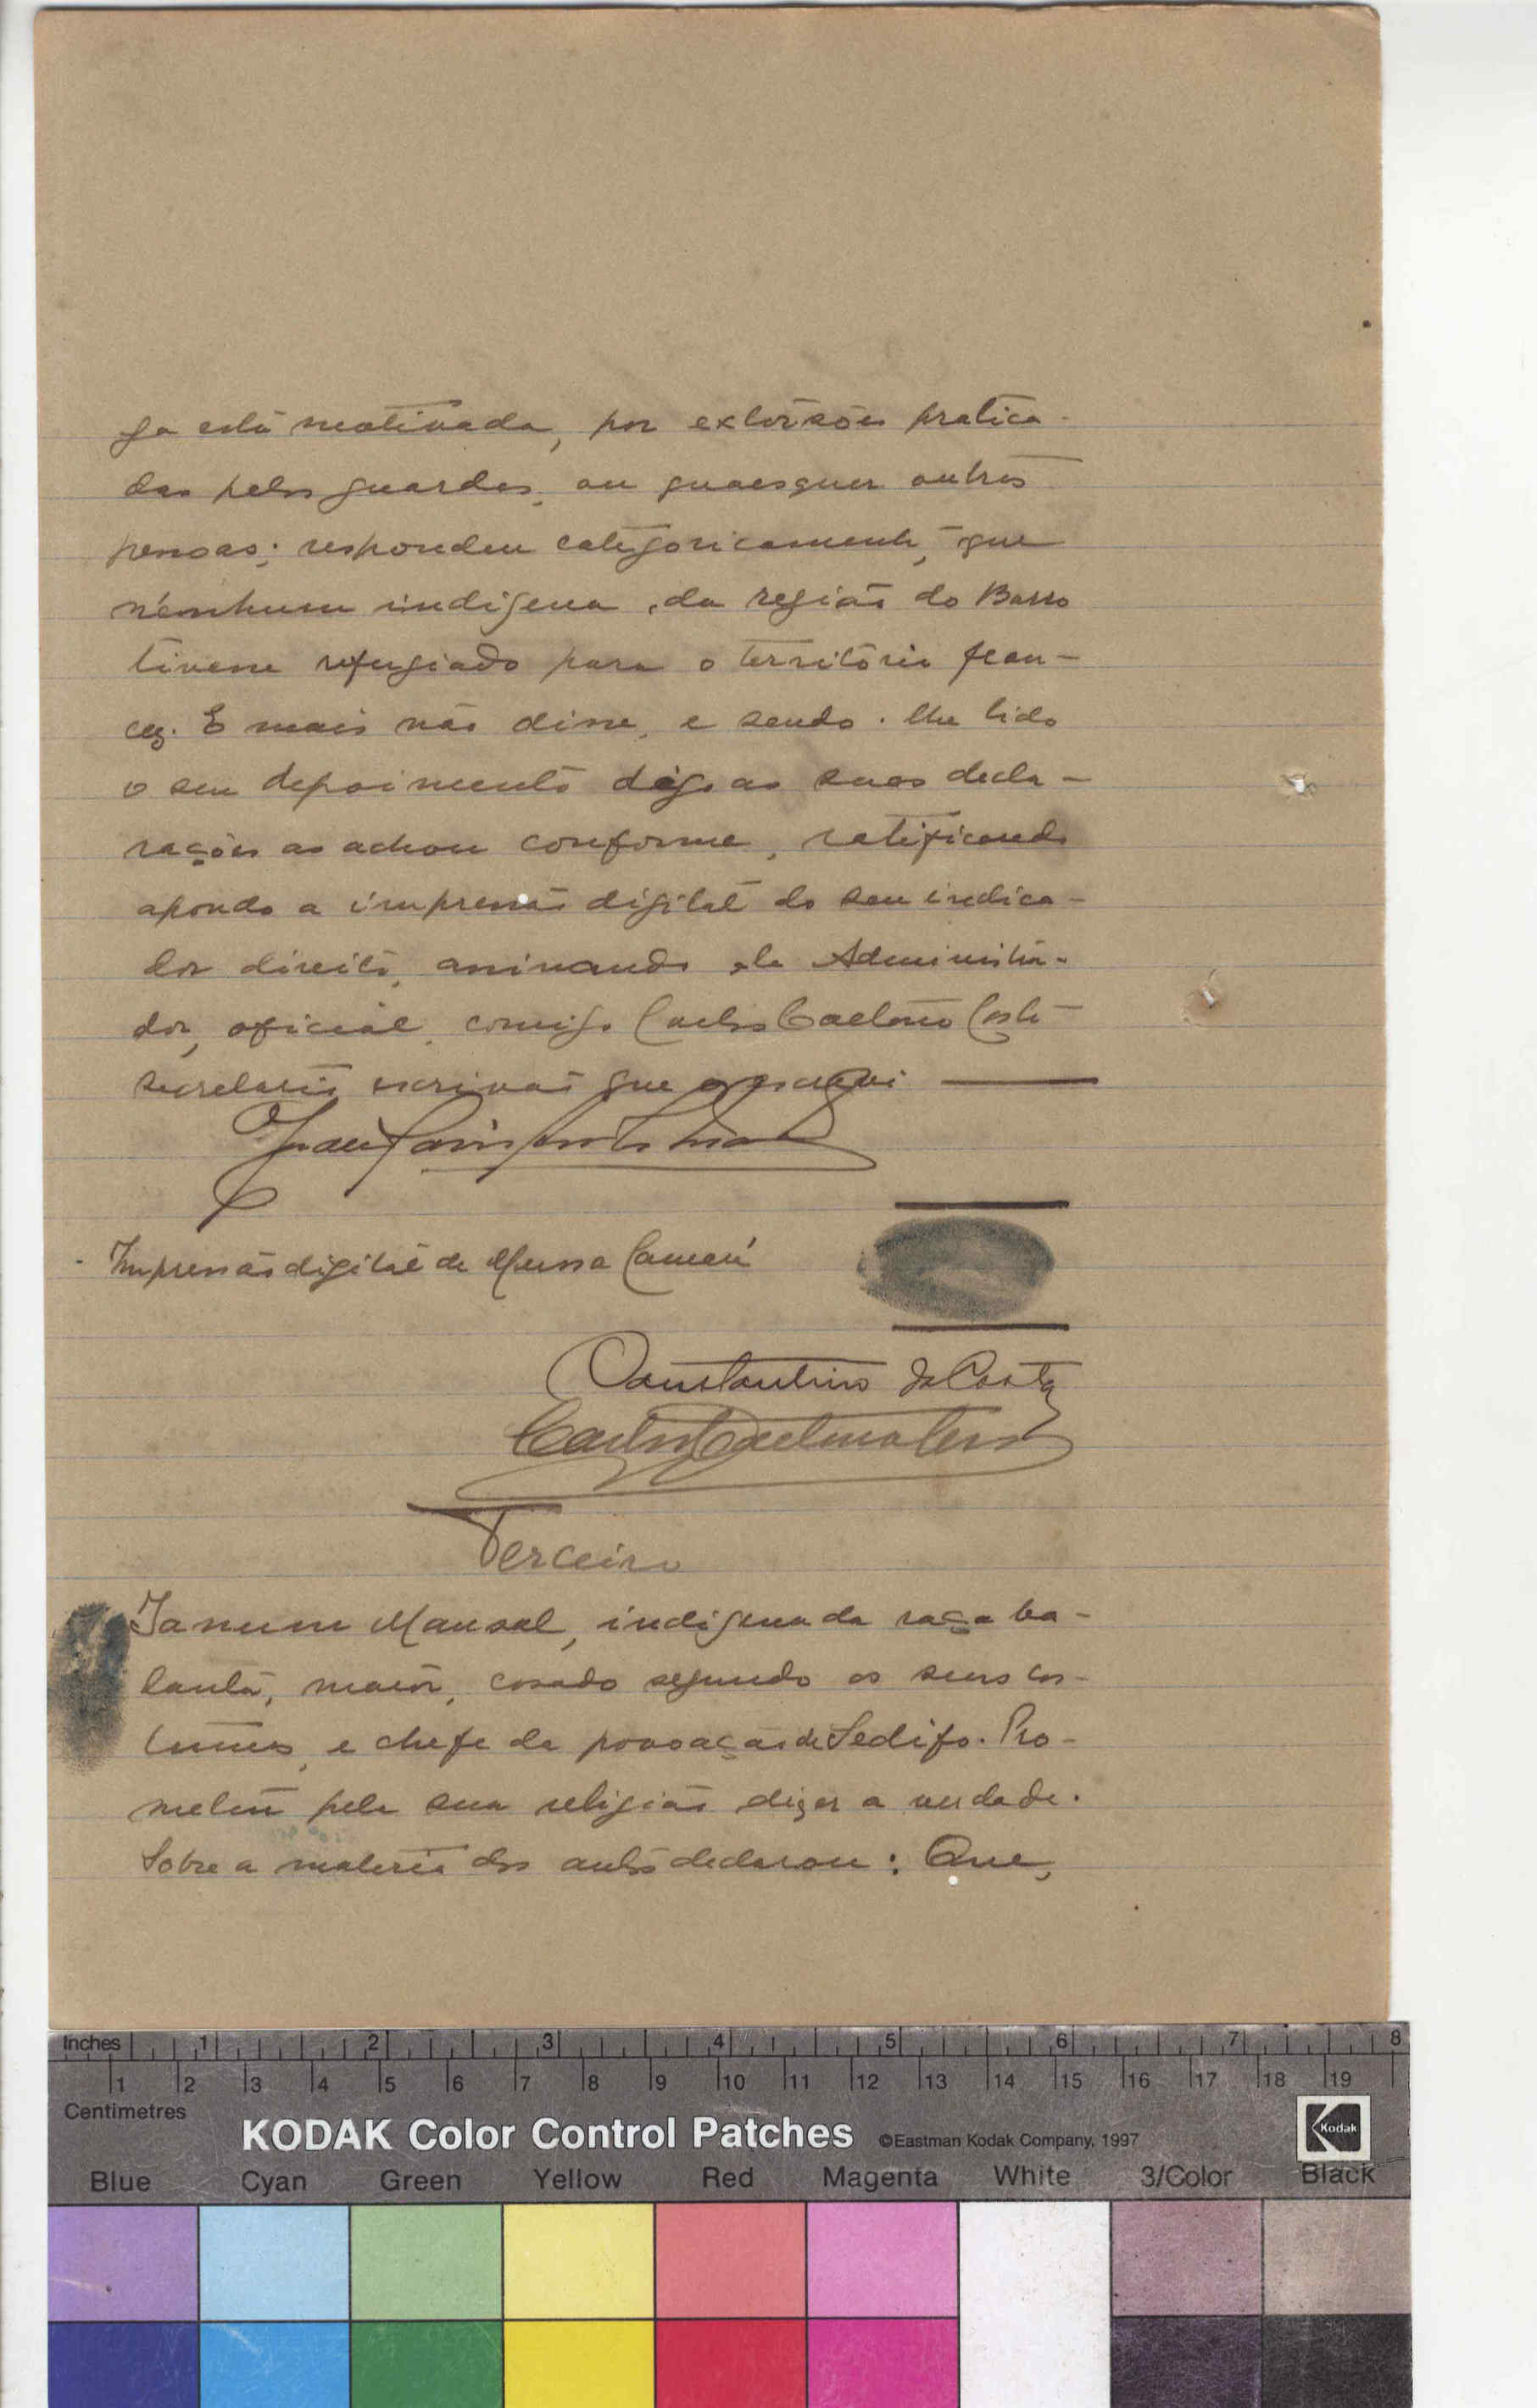 ga esta motivada, por extorsões pratica-
das pelos guardas, ou quaesquer outras
pessoas; respondeu categoricamente, que
nenhum indigena, da região do Barro
tivesse refugiado para o território fran-
cez. E mais não disse, e sendo-lhe lido
o seu depoimento digo as suas decla-
rações as achou conforme, ratificando
apondo a impressão digital do seu indica-
dor direito, assinando ele Administra-
dor, oficial, comigo Carlos Caetano Costa
secretario escrivão que o escrevi
Impressão digital de Mussa Camará
Constantino da Costa
Carlos Caetano Costa
Terceiro
Mansal, indigena da raça ba-
lanta, maior, casado segundo os seus cos-
tumes, e chefe da povoação de Sedifo. Pro-
meteu pela sua religião dizer a verdade.
Sobre a materia dos autos declarou: Que,
Inches 1 2 3 4 5 6 7 8
1 2 3 4 5 6 7 8 9 10 11 12 13 14 15 16 17 18 19
Centimetres
KODAK Color Control Patches ©Eastman Kodak Company, 1997 Kodak
Blue Cyan Green Yellow Red Magenta White 3/Color Black